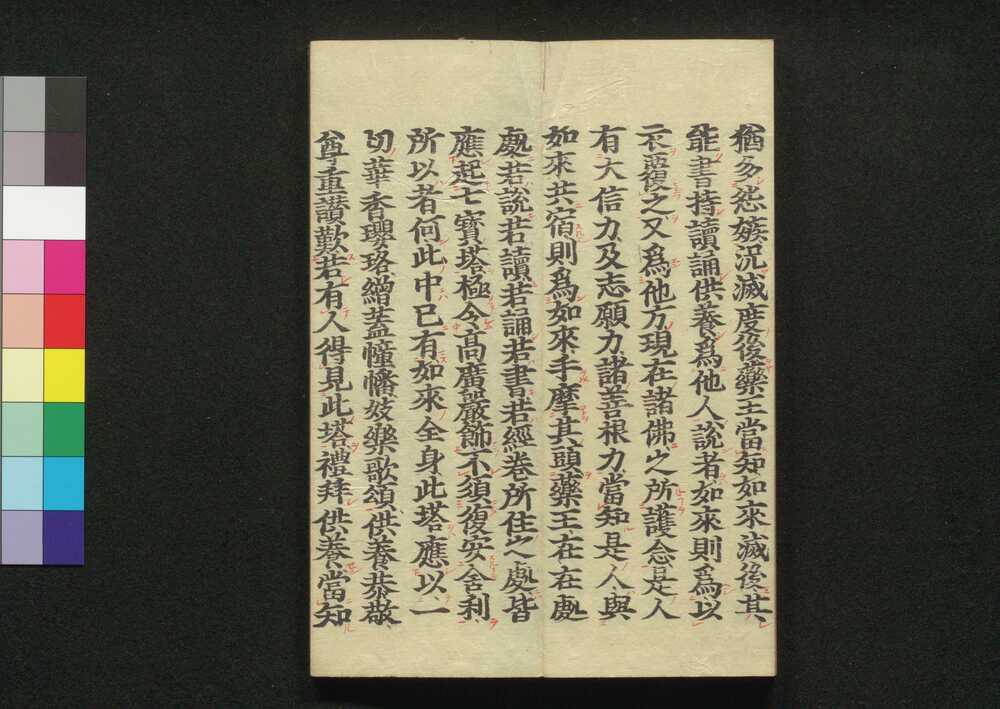 猶多怨嫉況滅度後藥王當知如來滅後其
能書持讀誦供養爲他人說者如來則爲以
衣覆之又爲他方現在諸佛之所護念是人
有大信力及志願力諸善根力當知是人與
如來共宿則爲如來手摩其頭藥王在在處
處若說若讀若誦若書若經卷所住之處皆
應起七寶塔極令高廣嚴飾不須復安舍利
所以者何此中已有如來全身此塔應以一
切華香瓔珞繒蓋幢幡妓樂歌頌供養恭敬
尊重讃歎若有人得見此塔禮拜供養當知